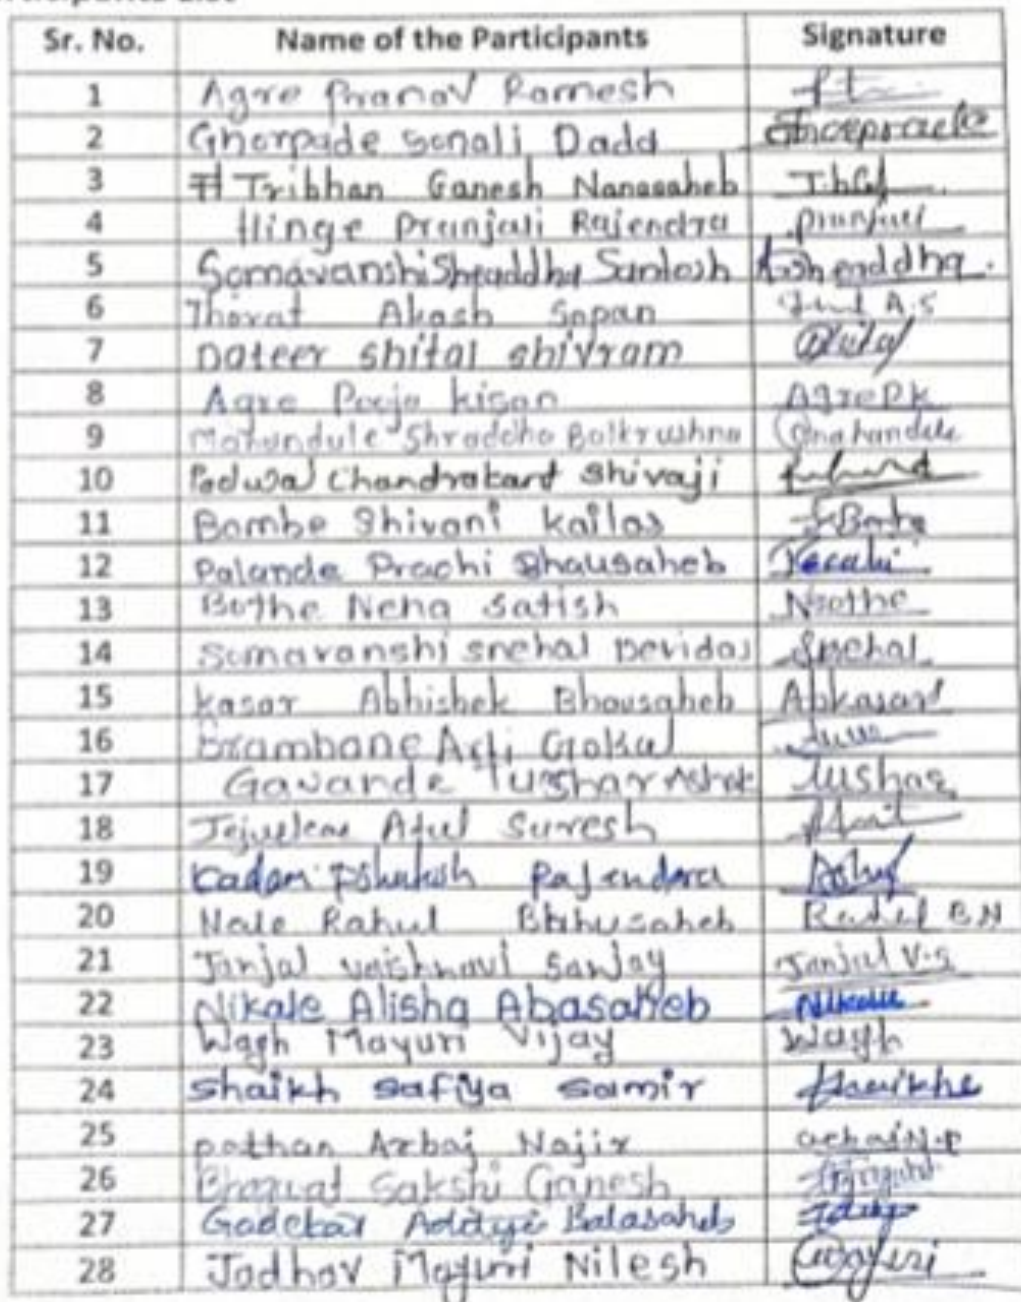 Sr. No. Name of the Participants Signature
1 Agre Pranav Ramesh
2 Ghorpade Sonali Dada Ghorpade
3 Tribhan Ganesh Nanasaheb
4 Hinge Pranjali Rajendra Pranjali
5 Somavanshi Shraddha Santosh Shraddha.
6 Thorat Akash Sopan A.S
7 Dateer Shital Shivram
8 Agre Pooja Kisan Agre P.K
9 Mahandule Shraddha Balkrushna Mahandule
10 Padwal Chandrakant Shivaji
11 Bombe Shivani Kailas
12 Palande Prachi Bhausaheb
13 Bothe Neha Satish NBothe
14 Somavanshi Snehal Devidas Snehal
15 Kasar Abhishek Bhausaheb Abkasar
16 Gokul
17 Gavande Tushar Ashok Tushar
18 Atul Suresh
19 Kadam Rajendra
20 Nale Rahul Bhausaheb Rahul B N
21 Janjal Vaishnavi Sanjay Janjal V.S
22 Nikale Alisha Abasaheb Nikale
23 Wagh Mayuri Vijay Wagh
24 Shaikh Safiya Samir
25 Pathan Arbaj Najir
26 Bhagwat Sakshi Ganesh
27 Balasaheb
28 Jadhav Mayuri Nilesh Mayuri